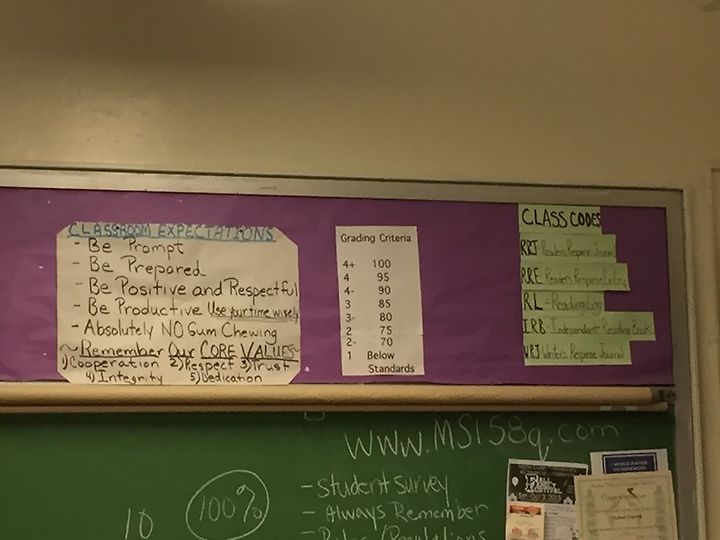 CLASSROOM EXPECTATIONS
- Be Prompt
- Be Prepared
- Be Positive and Respectful
- Be Productive Use your time wisely
- Absolutely NO Gum Chewing
~Remember Our CORE VALUES~
1) Cooperation 2) Respect 3) Trust
4) Integrity 5) Dedication
Grading Criteria
4+ 100
4 95
4- 90
3 85
3- 80
2 75
2- 70
1 Below
Standards
CLASS CODES
RRJ Readers Response Journal
RRE Readers Response Entry
RL = Reading Log
IRB = Independent Reading Book
WRJ Writer's Response Journal
www.MS158q.com
10
100%
- Student Survey
- Always Remember
- Rules/Regulations